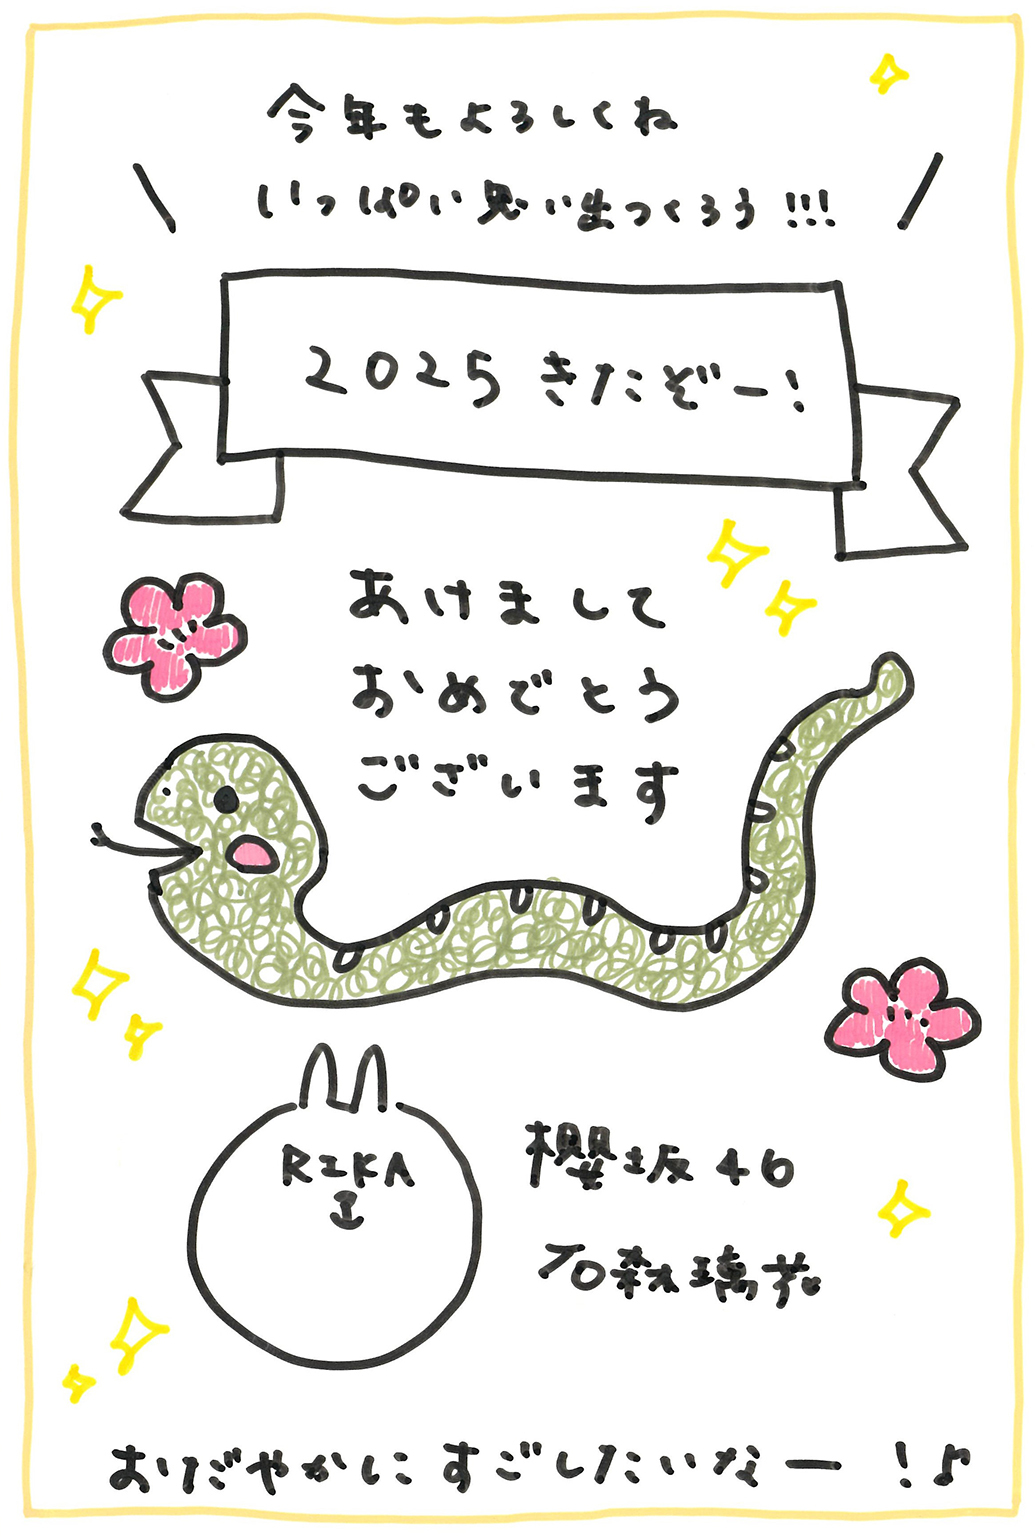 今年もよろしくね
いっぱい思い出つくろう!!!
2025 きたぞー!
あけまして
おめでとう
ございます
RIKA
櫻坂46
石森璃花
おだやかにすごしたいなー !♪